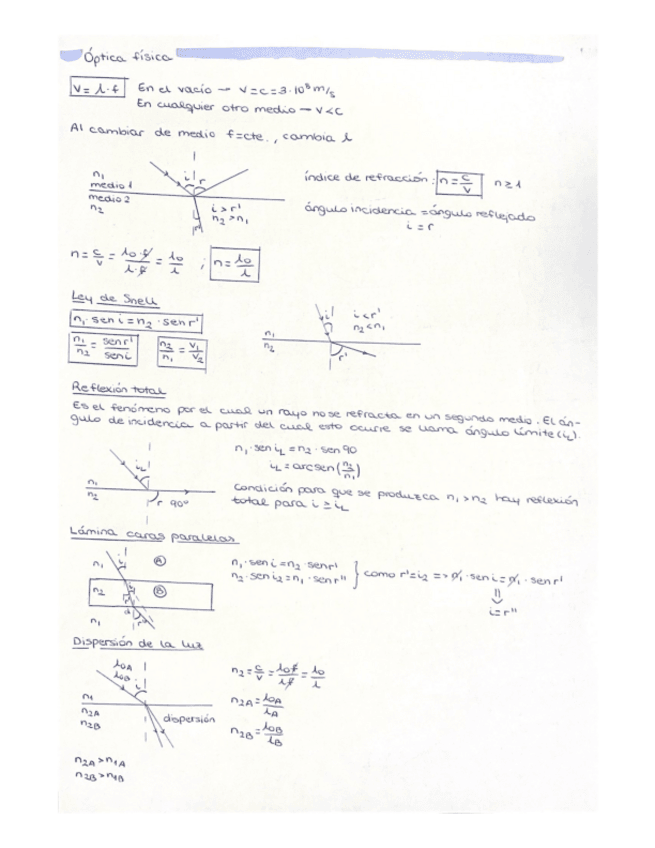 Óptica física
v = λ·f En el vacío → v=c=3·10⁸ m/s
En cualquier otro medio → v<c
Al cambiar de medio f=cte., cambia λ
i r
n₁
medio 1
medio 2
n₂
i > r'
n₂ > n₁
r'
índice de refracción: n = c/v n ≥ 1
ángulo incidencia = ángulo reflejado
i = r
n = c/v = λ₀·f/λ·f = λ₀/λ ; n = λ₀/λ
Ley de Snell
n₁·sen i = n₂·sen r'
n₁/n₂ = sen r'/sen i n₂/n₁ = v₁/v₂
i
i < r'
n₂ < n₁
n₁
n₂
r'
Reflexión total
Es el fenómeno por el cual un rayo no se refracta en un segundo medio. El án-
gulo de incidencia a partir del cual esto ocurre se llama ángulo límite (i_L).
i_L
n₁
n₂
r 90º
n₁·sen i_L = n₂·sen 90
i_L = arcsen(n₂/n₁)
Condición para que se produzca n₁>n₂ hay reflexión
total para i ≥ i_L
Lámina caras paralelas
n₁ i A
n₂ B
n₁ r''
n₁·sen i = n₂·sen r'
n₂·sen i₂ = n₁·sen r'' } como r'=i₂ => n₁·sen i = n₁·sen r'
⇓
i = r''
Dispersión de la luz
λ₀A
λ₀B
i
n₁
n₂A
n₂B
dispersión
n₂ = c/v = λ₀f/λf = λ₀/λ
n₂A = λ₀A/λA
n₂B = λ₀B/λB
n₂A > n₁A
n₂B > n₁B